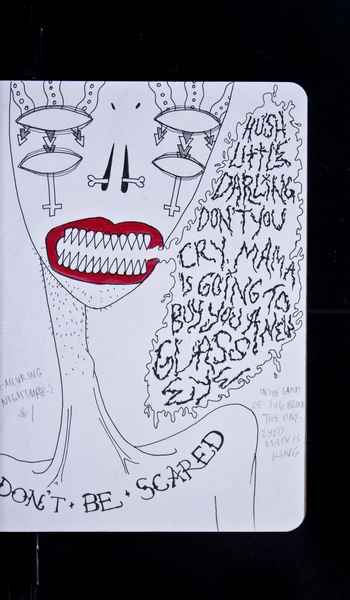 HUSH
LITTLE
DARLING
DON'T YOU
CRY MAMA
IS GOING TO
BUY YOU A NEW
GLASS
EYE
NIGHTMARE
#1
IN THE LAND
OF THE BLIND
THE ONE-
EYED
MAN IS
KING
DON'T · BE · SCARED